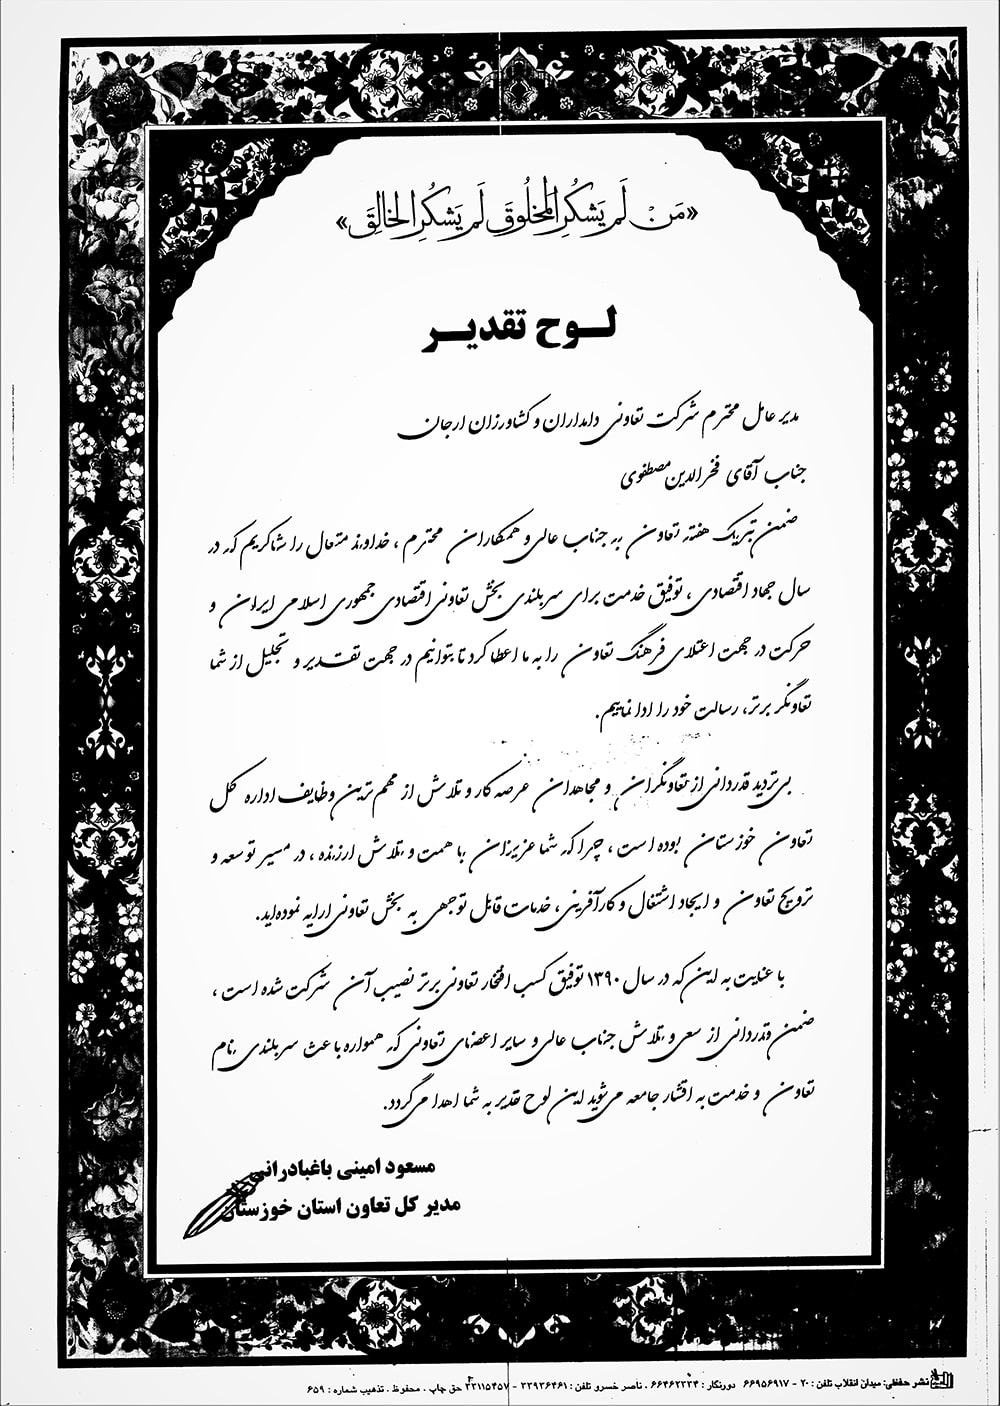 «مَنْ لَم يَشكُرِ المَخلُوقَ لَم يَشكُرِ الخالِقَ»
لوح تقدیر
مدیر عامل محترم شرکت تعاونی دامداران و کشاورزان ارجان
جناب آقای فخرالدین مصطفوی
ضمن تبریک هفته تعاون به جناب عالی و همکاران محترم ، خداوند متعال را شاکریم که در
سال جهاد اقتصادی ، توفیق خدمت برای سربلندی بخش تعاونی اقتصادی جمهوری اسلامی ایران و
حرکت در جهت اعتلای فرهنگ تعاون را به ما اعطا کرد تا بتوانیم در جهت تقدیر و تجلیل از شما
تعاونگر برتر، رسالت خود را ادا نماییم.
بی‌تردید قدردانی از تعاونگران و مجاهدان عرصه کار و تلاش از مهم ترین وظایف اداره کل
تعاون خوزستان بوده است ، چرا که شما عزیزان با همت و تلاش ارزنده ، در مسیر توسعه و
ترویج تعاون و ایجاد اشتغال و کارآفرینی، خدمات قابل توجهی به بخش تعاونی ارایه نموده‌اید.
با عنایت به این که در سال ۱۳۹۰ توفیق کسب افتخار تعاونی برتر نصیب آن شرکت شده است ،
ضمن قدردانی از سعی و تلاش جناب عالی و سایر اعضای تعاونی که همواره باعث سربلندی نام
تعاون و خدمت به اقشار جامعه می‌شوید این لوح تقدیر به شما اهدا می‌گردد.
مسعود امینی باغبادرانی
مدیر کل تعاون استان خوزستان
نشر حفظی: میدان انقلاب تلفن : ۲۰ - ۶۶۹۵۶۹۱۷ دورنگار : ۶۶۴۶۲۳۳۴ . ناصر خسرو تلفن : ۳۳۹۳۶۴۶۱ - ۳۳۱۱۵۴۵۷ حق چاپ . محفوظ . تذهیب شماره : ۶۵۹